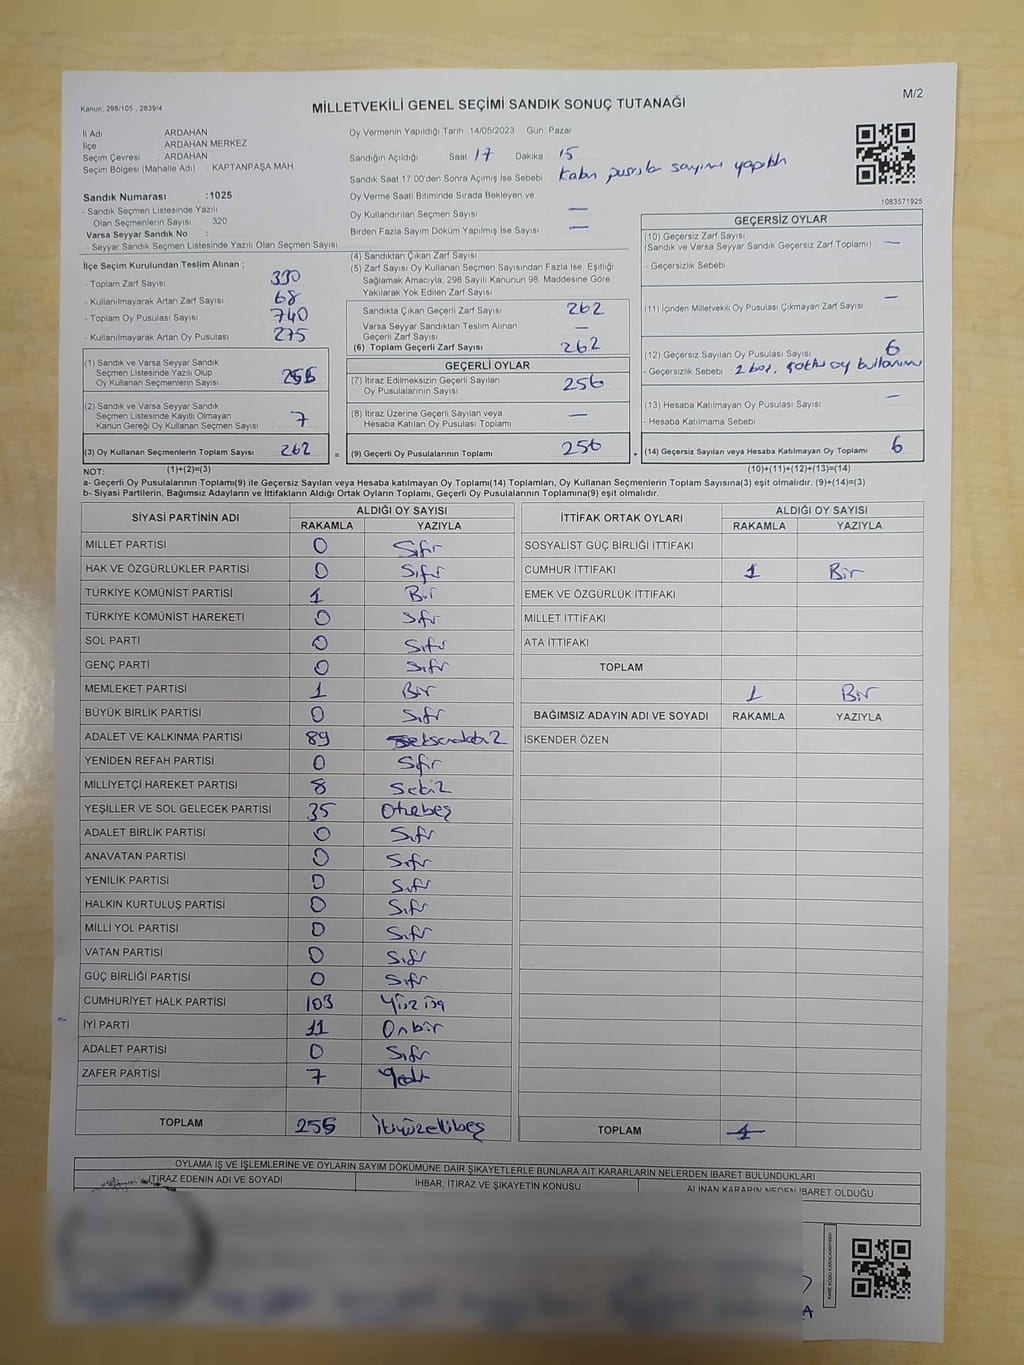 Kanun: 298/105 , 2839/4
MİLLETVEKİLİ GENEL SEÇİMİ SANDIK SONUÇ TUTANAĞI
M/2
İl Adı : ARDAHAN
İlçe : ARDAHAN MERKEZ
Seçim Çevresi : ARDAHAN
Seçim Bölgesi (Mahalle Adı) : KAPTANPAŞA MAH
Sandık Numarası : 1025
- Sandık Seçmen Listesinde Yazılı
Olan Seçmenlerin Sayısı : 320
Varsa Seyyar Sandık No :
- Seyyar Sandık Seçmen Listesinde Yazılı Olan Seçmen Sayısı :
Oy Vermenin Yapıldığı Tarih :14/05/2023 Gün: Pazar
Sandığın Açıldığı Saat 17 Dakika 15
Sandık Saat 17:00'den Sonra Açılmış İse Sebebi : Kabin pusula sayımı yapıldı
Oy Verme Saati Bitiminde Sırada Bekleyen ve
Oy Kullandırılan Seçmen Sayısı : —
Birden Fazla Sayım Döküm Yapılmış İse Sayısı : —
1083571925
İlçe Seçim Kurulundan Teslim Alınan ;
- Toplam Zarf Sayısı : 330
- Kullanılmayarak Artan Zarf Sayısı : 68
- Toplam Oy Pusulası Sayısı : 740
- Kullanılmayarak Artan Oy Pusulası : 275
(1) Sandık ve Varsa Seyyar Sandık
Seçmen Listesinde Yazılı Olup
Oy Kullanan Seçmenlerin Sayısı : 255
(2) Sandık ve Varsa Seyyar Sandık
Seçmen Listesinde Kayıtlı Olmayan
Kanun Gereği Oy Kullanan Seçmen Sayısı : 7
(3) Oy Kullanan Seçmenlerin Toplam Sayısı : 262 =
(1)+(2)=(3)
(4) Sandıktan Çıkan Zarf Sayısı :
(5) Zarf Sayısı Oy Kullanan Seçmen Sayısından Fazla İse, Eşitliği
Sağlamak Amacıyla; 298 Sayılı Kanunun 98. Maddesine Göre
Yakılarak Yok Edilen Zarf Sayısı :
Sandıkta Çıkan Geçerli Zarf Sayısı : 262
Varsa Seyyar Sandıktan Teslim Alınan
Geçerli Zarf Sayısı : —
(6) Toplam Geçerli Zarf Sayısı : 262
GEÇERLİ OYLAR
(7) İtiraz Edilmeksizin Geçerli Sayılan
Oy Pusulalarının Sayısı : 256
(8) İtiraz Üzerine Geçerli Sayılan veya
Hesaba Katılan Oy Pusulası Toplamı : —
(9) Geçerli Oy Pusulalarının Toplamı : 256 +
GEÇERSİZ OYLAR
(10) Geçersiz Zarf Sayısı
(Sandık ve Varsa Seyyar Sandık Geçersiz Zarf Toplamı) : —
- Geçersizlik Sebebi :
(11) İçinden Milletvekili Oy Pusulası Çıkmayan Zarf Sayısı : —
(12) Geçersiz Sayılan Oy Pusulası Sayısı : 6
- Geçersizlik Sebebi : 2 boş, çoklu oy kullanımı
(13) Hesaba Katılmayan Oy Pusulası Sayısı : —
- Hesaba Katılmama Sebebi :
(14) Geçersiz Sayılan veya Hesaba Katılmayan Oy Toplamı : 6
(10)+(11)+(12)+(13)=(14)
NOT:
a- Geçerli Oy Pusulalarının Toplamı(9) ile Geçersiz Sayılan veya Hesaba katılmayan Oy Toplamı(14) Toplamları, Oy Kullanan Seçmenlerin Toplam Sayısına(3) eşit olmalıdır. (9)+(14)=(3)
b- Siyasi Partilerin, Bağımsız Adayların ve İttifakların Aldığı Ortak Oyların Toplamı, Geçerli Oy Pusulalarının Toplamına(9) eşit olmalıdır.
SİYASİ PARTİNİN ADI ALDIĞI OY SAYISI
RAKAMLA YAZIYLA
MİLLET PARTİSİ 0 Sıfır
HAK VE ÖZGÜRLÜKLER PARTİSİ 0 Sıfır
TÜRKİYE KOMÜNİST PARTİSİ 1 Bir
TÜRKİYE KOMÜNİST HAREKETİ 0 Sıfır
SOL PARTİ 0 Sıfır
GENÇ PARTİ 0 Sıfır
MEMLEKET PARTİSİ 1 Bir
BÜYÜK BİRLİK PARTİSİ 0 Sıfır
ADALET VE KALKINMA PARTİSİ 89 Seksendokuz
YENİDEN REFAH PARTİSİ 0 Sıfır
MİLLİYETÇİ HAREKET PARTİSİ 8 Sekiz
YEŞİLLER VE SOL GELECEK PARTİSİ 35 Otuzbeş
ADALET BİRLİK PARTİSİ 0 Sıfır
ANAVATAN PARTİSİ 0 Sıfır
YENİLİK PARTİSİ 0 Sıfır
HALKIN KURTULUŞ PARTİSİ 0 Sıfır
MİLLİ YOL PARTİSİ 0 Sıfır
VATAN PARTİSİ 0 Sıfır
GÜÇ BİRLİĞİ PARTİSİ 0 Sıfır
CUMHURİYET HALK PARTİSİ 103 Yüz üç
İYİ PARTİ 11 Onbir
ADALET PARTİSİ 0 Sıfır
ZAFER PARTİSİ 7 Yedi
TOPLAM 255 İkiyüzellibeş
İTTİFAK ORTAK OYLARI ALDIĞI OY SAYISI
RAKAMLA YAZIYLA
SOSYALİST GÜÇ BİRLİĞİ İTTİFAKI
CUMHUR İTTİFAKI 1 Bir
EMEK VE ÖZGÜRLÜK İTTİFAKI
MİLLET İTTİFAKI
ATA İTTİFAKI
TOPLAM
1 Bir
BAĞIMSIZ ADAYIN ADI VE SOYADI RAKAMLA YAZIYLA
İSKENDER ÖZEN
TOPLAM
OYLAMA İŞ VE İŞLEMLERİNE VE OYLARIN SAYIM DÖKÜMÜNE DAİR ŞİKAYETLERLE BUNLARA AİT KARARLARIN NELERDEN İBARET BULUNDUKLARI
İTİRAZ EDENİN ADI VE SOYADI İHBAR, İTİRAZ VE ŞİKAYETİN KONUSU ALINAN KARARIN NEDEN İBARET OLDUĞU